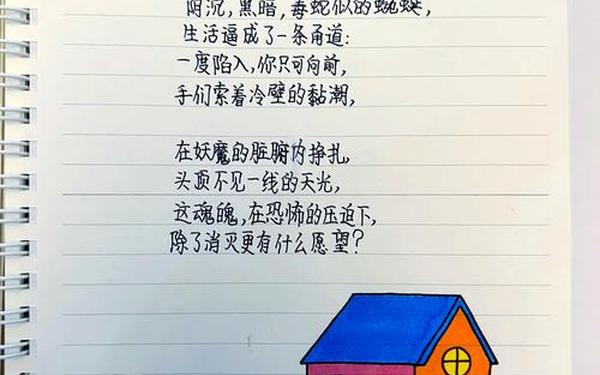 阴沉,黑暗,毒蛇似的蜿蜒,
生活逼成了一条甬道:
一度陷入,你只可向前,
手们索着冷壁的黏潮,
在妖魔的脏腑内挣扎,
头顶不见一线的天光,
这魂魄,在恐怖的压迫下,
除了消灭更有什么愿望?